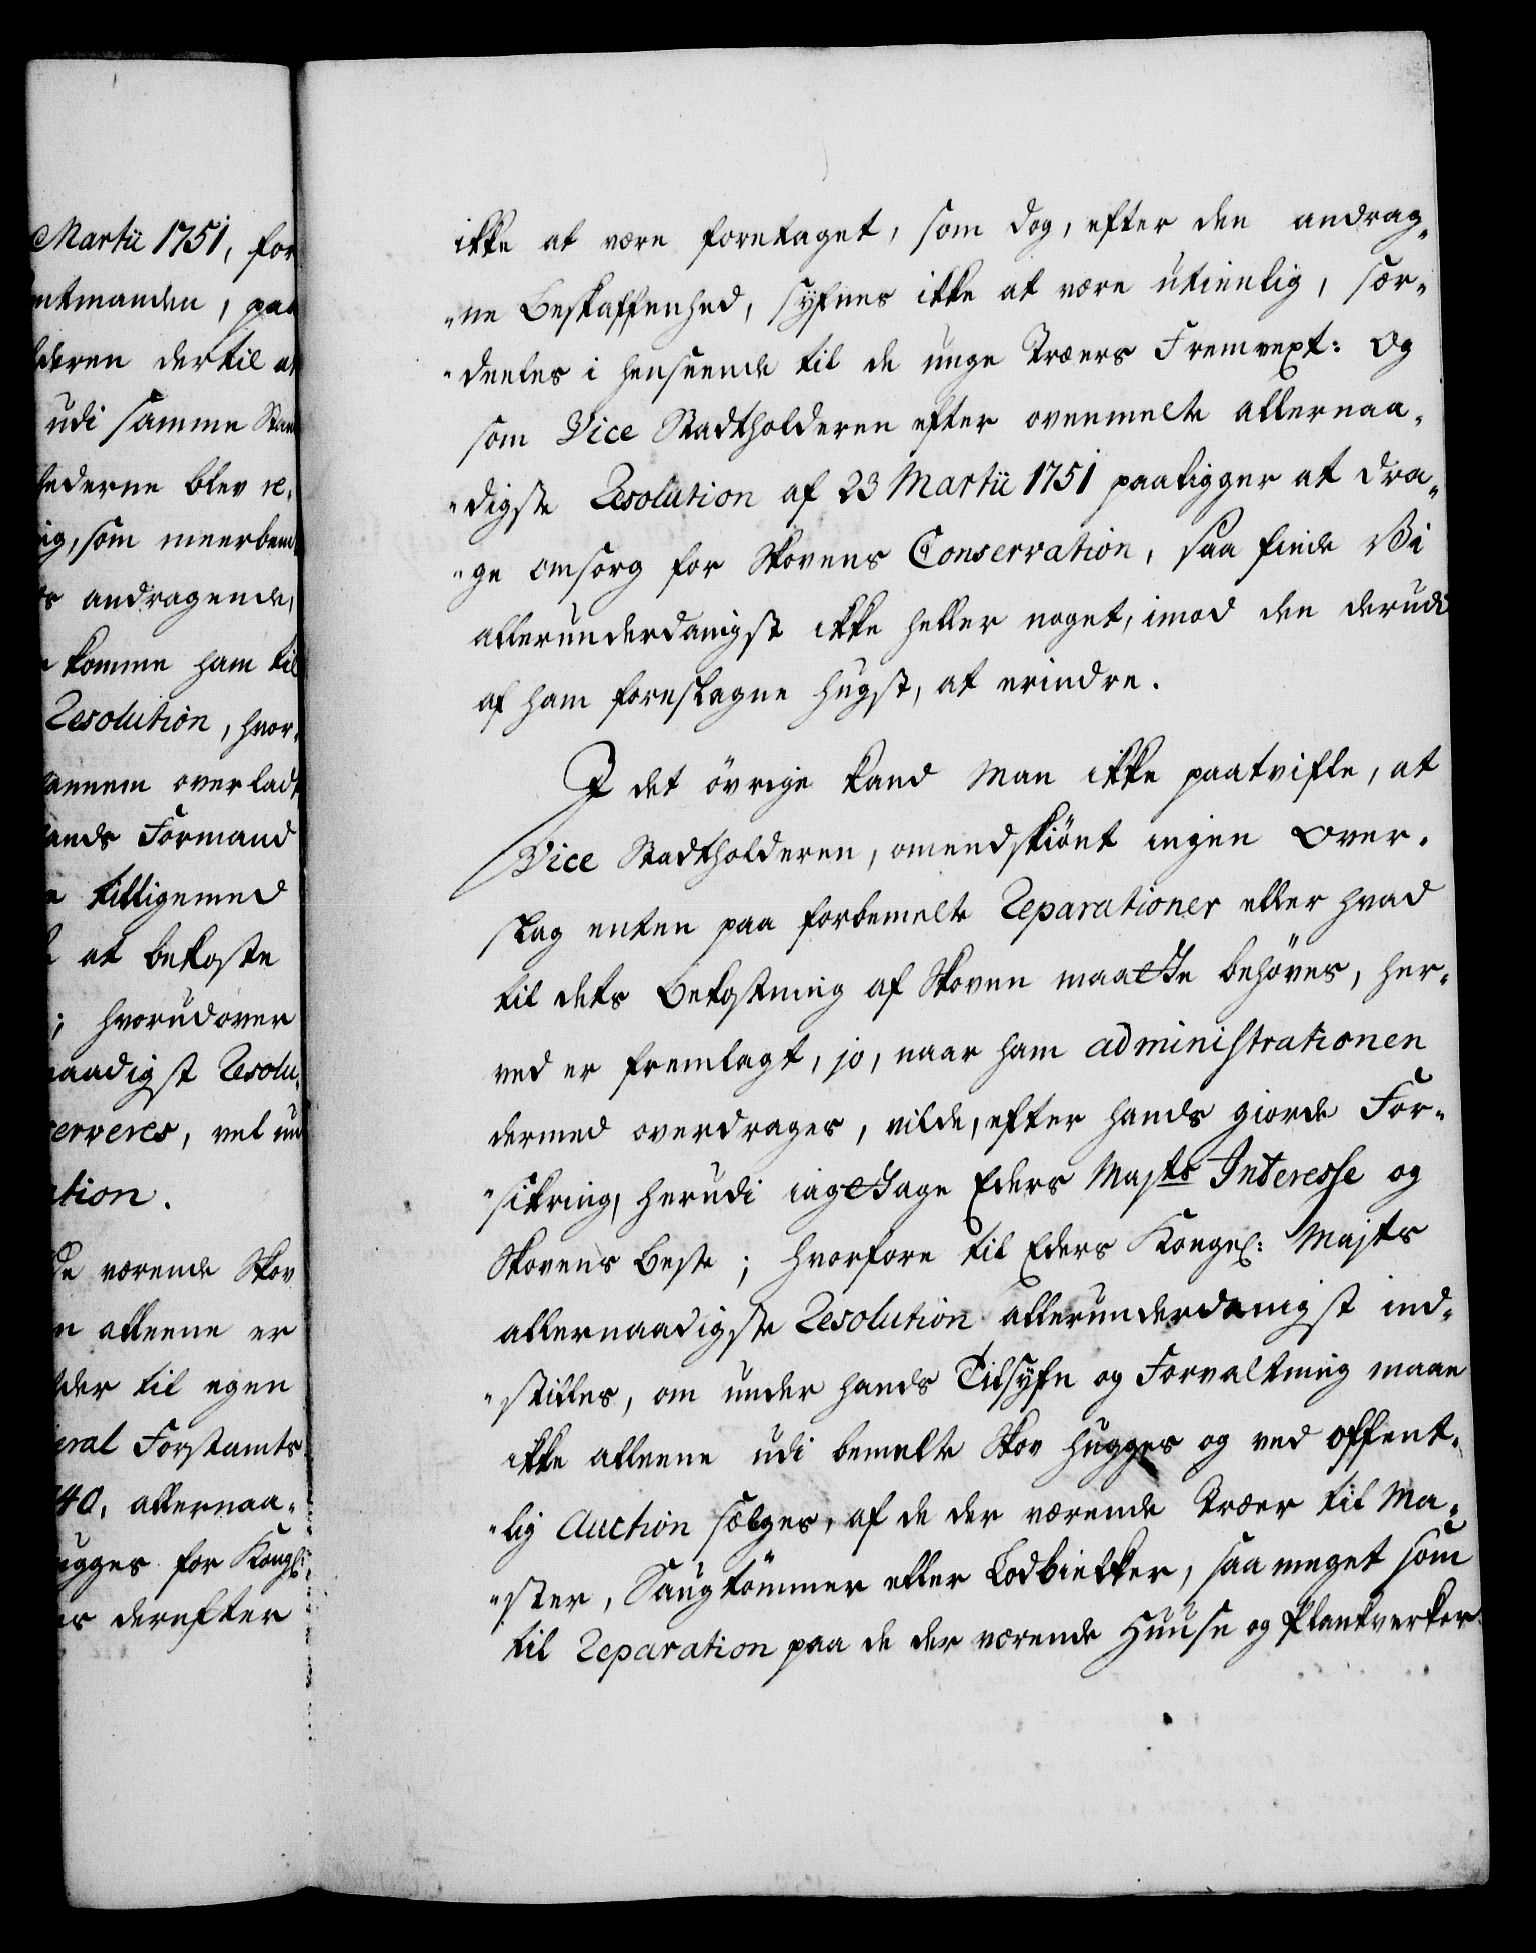 Martii 1751, for
mtmanden, paa
lderen dertil at
udi samme Stan
hederne blev re„
ig, som meerbem
rs andragende,
komme ham til
Resolution, hvor„
annem overladt
ands Formand
tilligemed
at bekoste
; hvorudover
naadigst Resolu„
serveres, vel un
ation.
de værende Skov
n alleene er
lder til egen
eral Forstamts
40, allernaa„
ugges for Kongl:
es derefter
ikke at være foretaget, som dog, efter den andrag„
„ne Beskaffenhed, syfnes ikke at være utienlig, sær„
„deeles i henseende til de unge Træers Fremvext: Og
som Vice Stadtholderen efter ovenmelte allernaa„
„digste Resolution af 23 Martii 1751 paaligger at dra„
„ge omsorg for Skovens Conservation, saa finde Vi
allerunderdanigst ikke heller noget, imod den derudi
af ham foreslagne hugst, at erindre.
I det övrige kand Man ikke paatvifle, at
Vice Stadtholderen, omendskiönt ingen Over„
slag enten paa forbemelte Reparationer eller hvad
til dets Bekostning af Skoven maatte behöves, her„
ved er fremlagt, jo, naar ham administrationen
dermed overdrages, vilde, efter hands giorde For„
„sikring, herudi iagttage Eders Majts Interesse og
Skovens Beste; hvorfore til Eders Kongel: Majts
allernaadigste Resolution allerunderdanigst ind„
„stilles, om under hands Tilsyfn og Forvaltning maae
ikke alleene udi bemelte Skov hugges og ved offent„
„lig Auction sælges, af de der værende Træer til Ma„
„ster, Saugtömmer eller Lodbielker, saa meget som
til Reparation paa de der værende Huuse og Plankverker